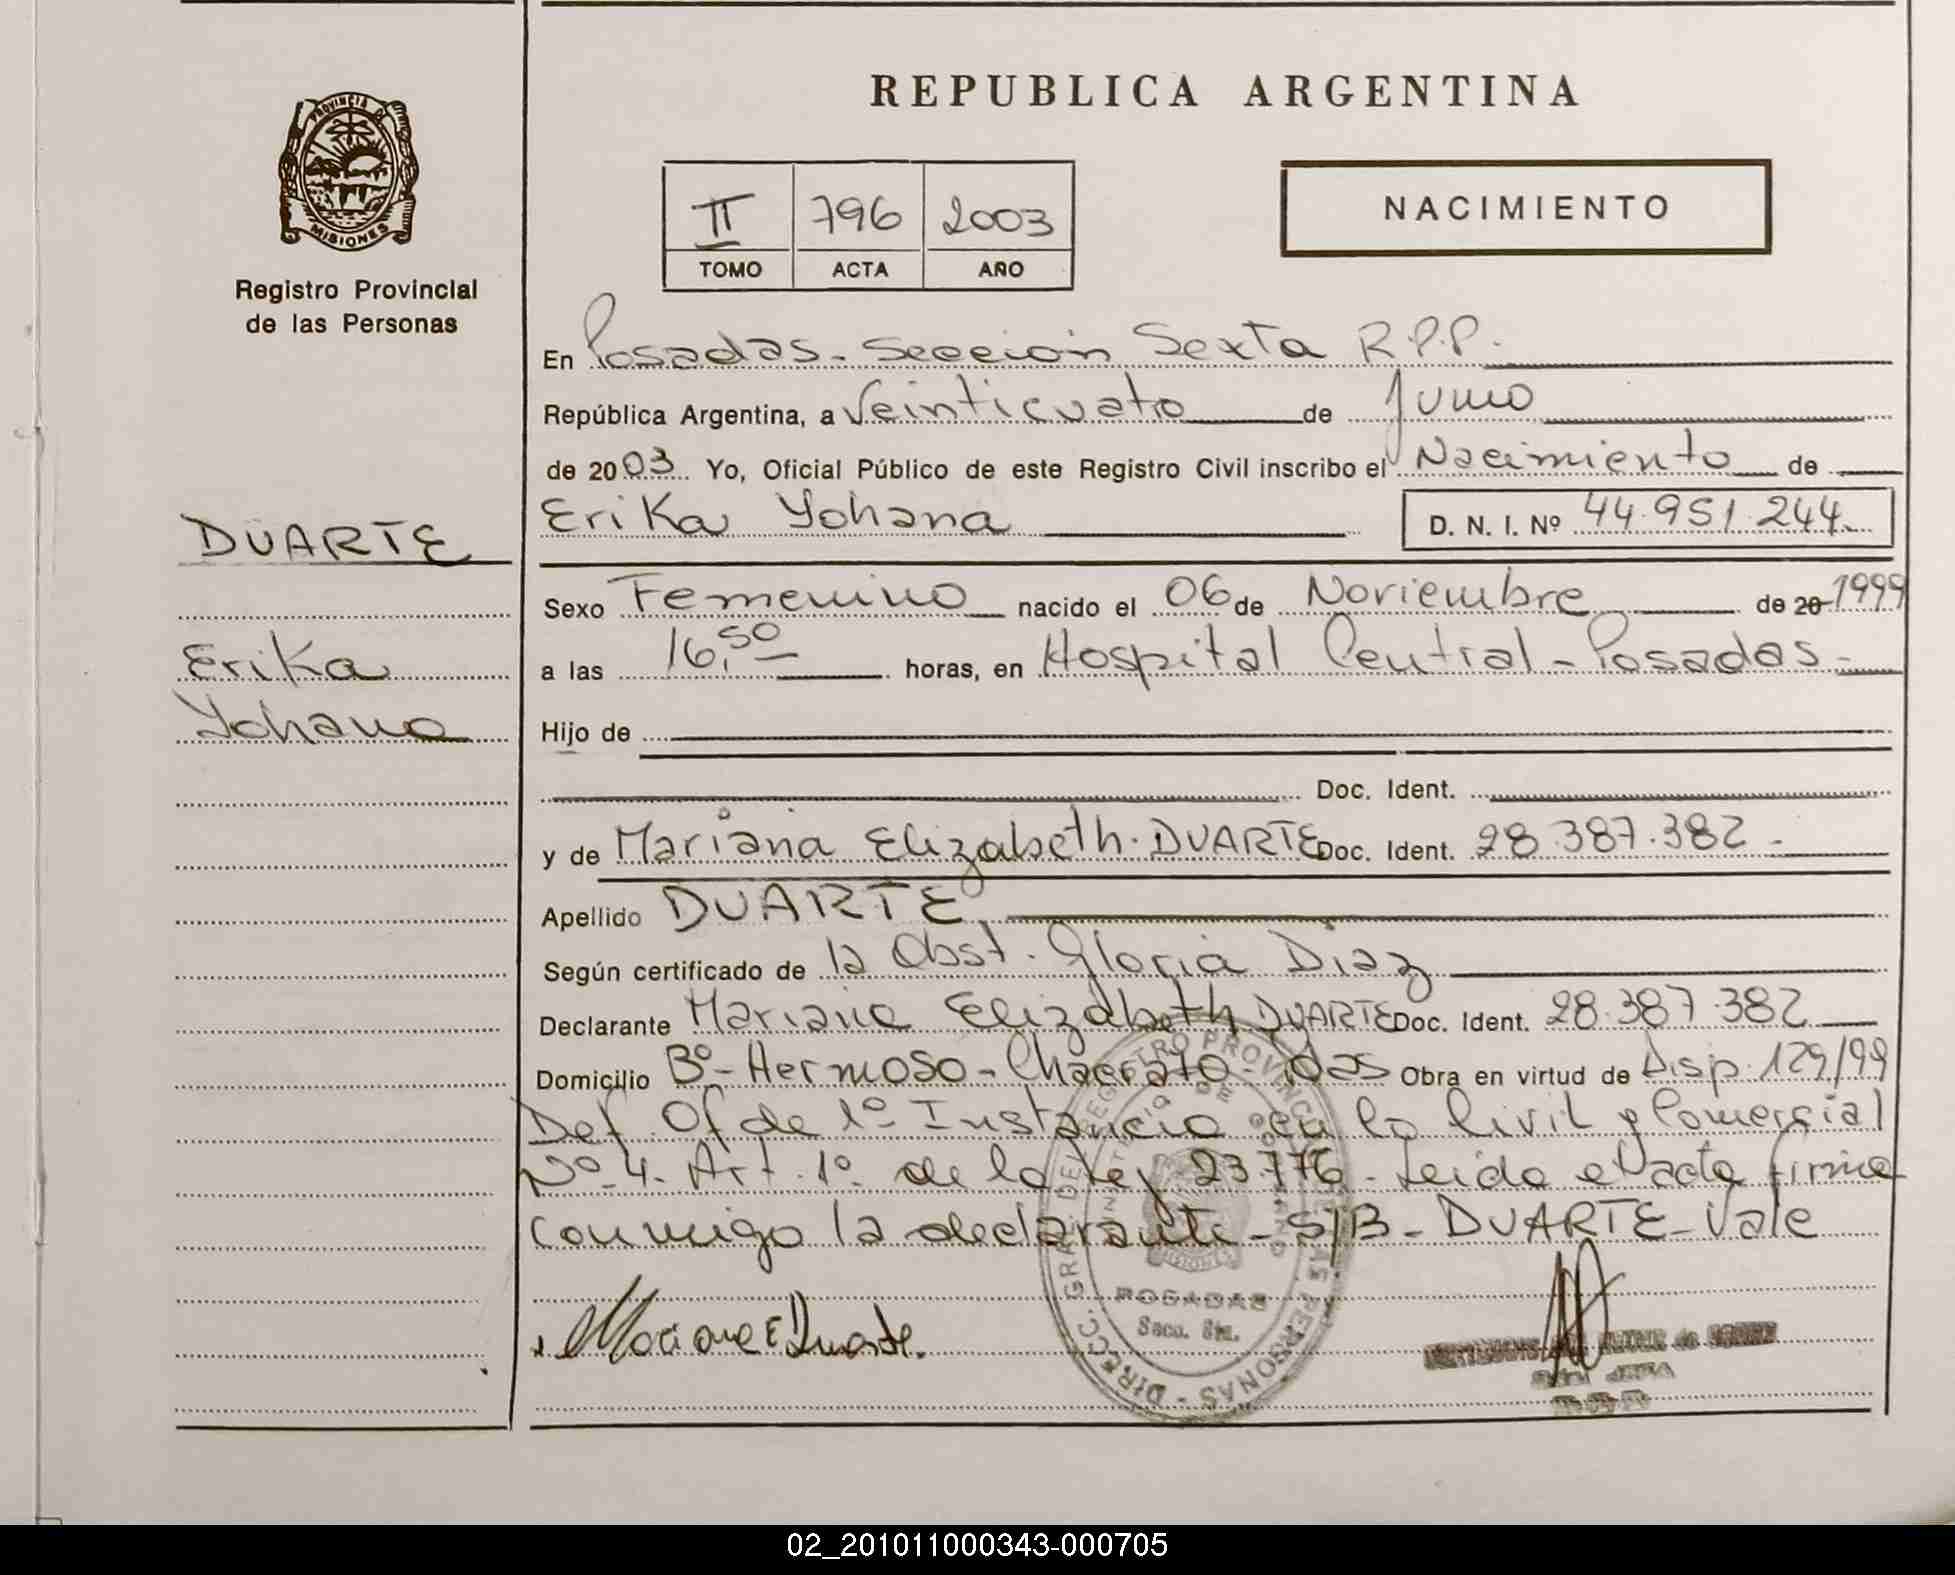 REPUBLICA ARGENTINA
PROVINCIA DE
MISIONES
Registro Provincial
de las Personas
II 796 2003
TOMO ACTA AÑO
NACIMIENTO
En Posadas - Sección Sexta R.P.P.
República Argentina, a Veinticuato de Junio
de 2003 Yo, Oficial Público de este Registro Civil inscribo el Nacimiento de
DUARTE
Erika Yohana D. N. I. Nº 44.951.244
Sexo Femenino nacido el 06 de Noviembre de 20 1999
Erika
a las 16,50 horas, en Hospital Central - Posadas -
Yohana
Hijo de
Doc. Ident.
y de Mariana Elizabeth DUARTE Doc. Ident. 28.387.382 -
Apellido DUARTE
Según certificado de la Obst. Gloria Diaz
Declarante Mariana Elizabeth DUARTE Doc. Ident. 28.387.382
Domicilio Bº - Hermoso - Obra en virtud de Disp. 129/99
Def. Of de 1º Instancia en lo Civil y Comercial
Nº 4. Art. 1º de la Ley 23.776 - Leida el acta firma
conmigo la declarante - S/B - DUARTE - Vale
Mariana E Duarte.
DIRECC. GRAL. DEL REGISTRO PROVINCIAL DE LAS PERSONAS
POSADAS
Secc. 6ta.
02_201011000343-000705